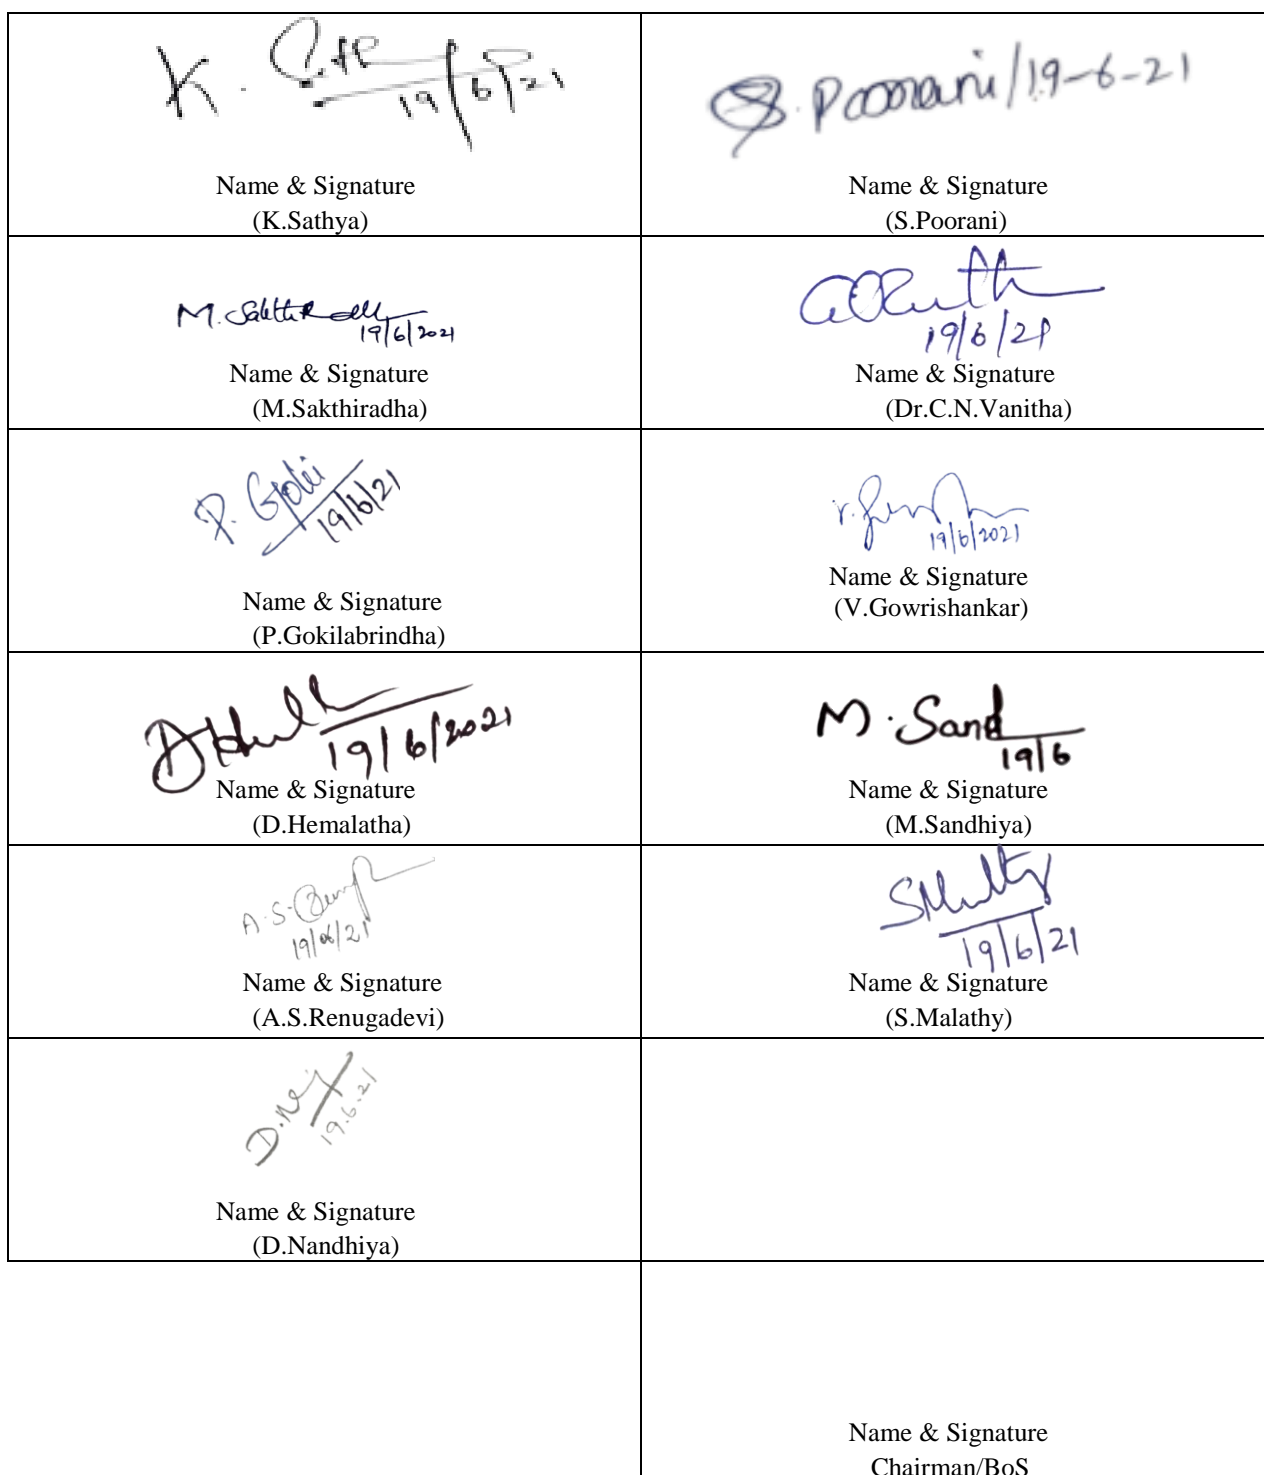 K.
19/6/21
Name & Signature
(K.Sathya)
S.Poorani/19-6-21
Name & Signature
(S.Poorani)
M.
19/6/2021
Name & Signature
(M.Sakthiradha)
19/6/21
Name & Signature
(Dr.C.N.Vanitha)
P.
19/6/21
Name & Signature
(P.Gokilabrindha)
19/6/2021
Name & Signature
(V.Gowrishankar)
19/6/2021
Name & Signature
(D.Hemalatha)
M.Sand
19/6
Name & Signature
(M.Sandhiya)
A.S.
19/06/21
Name & Signature
(A.S.Renugadevi)
19/6/21
Name & Signature
(S.Malathy)
D.
19.6.21
Name & Signature
(D.Nandhiya)
Name & Signature
Chairman/BoS